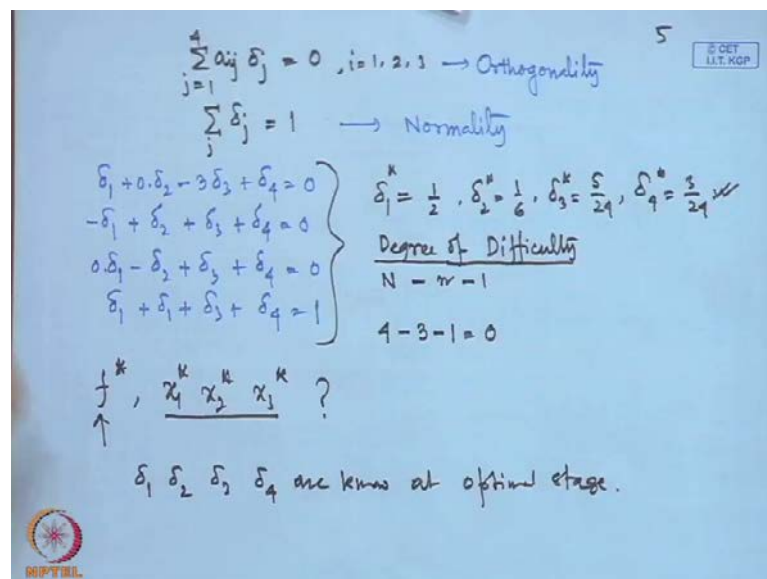 5
© CET
I.I.T. KGP
4
∑ aij δj = 0 , i=1, 2, 3 → Orthogonality
j=1
∑ δj = 1 → Normality
j
δ1 + 0.δ2 - 3δ3 + δ4 = 0
-δ1 + δ2 + δ3 + δ4 = 0
0.δ1 - δ2 + δ3 + δ4 = 0
δ1 + δ1 + δ3 + δ4 = 1
δ1* = 1/2 , δ2* = 1/6 , δ3* = 5/24 , δ4* = 3/24
Degree of Difficulty
N - n - 1
4 - 3 - 1 = 0
f* , x1* x2* x3* ?
δ1 δ2 δ3 δ4 are know at optimal stage.
NPTEL